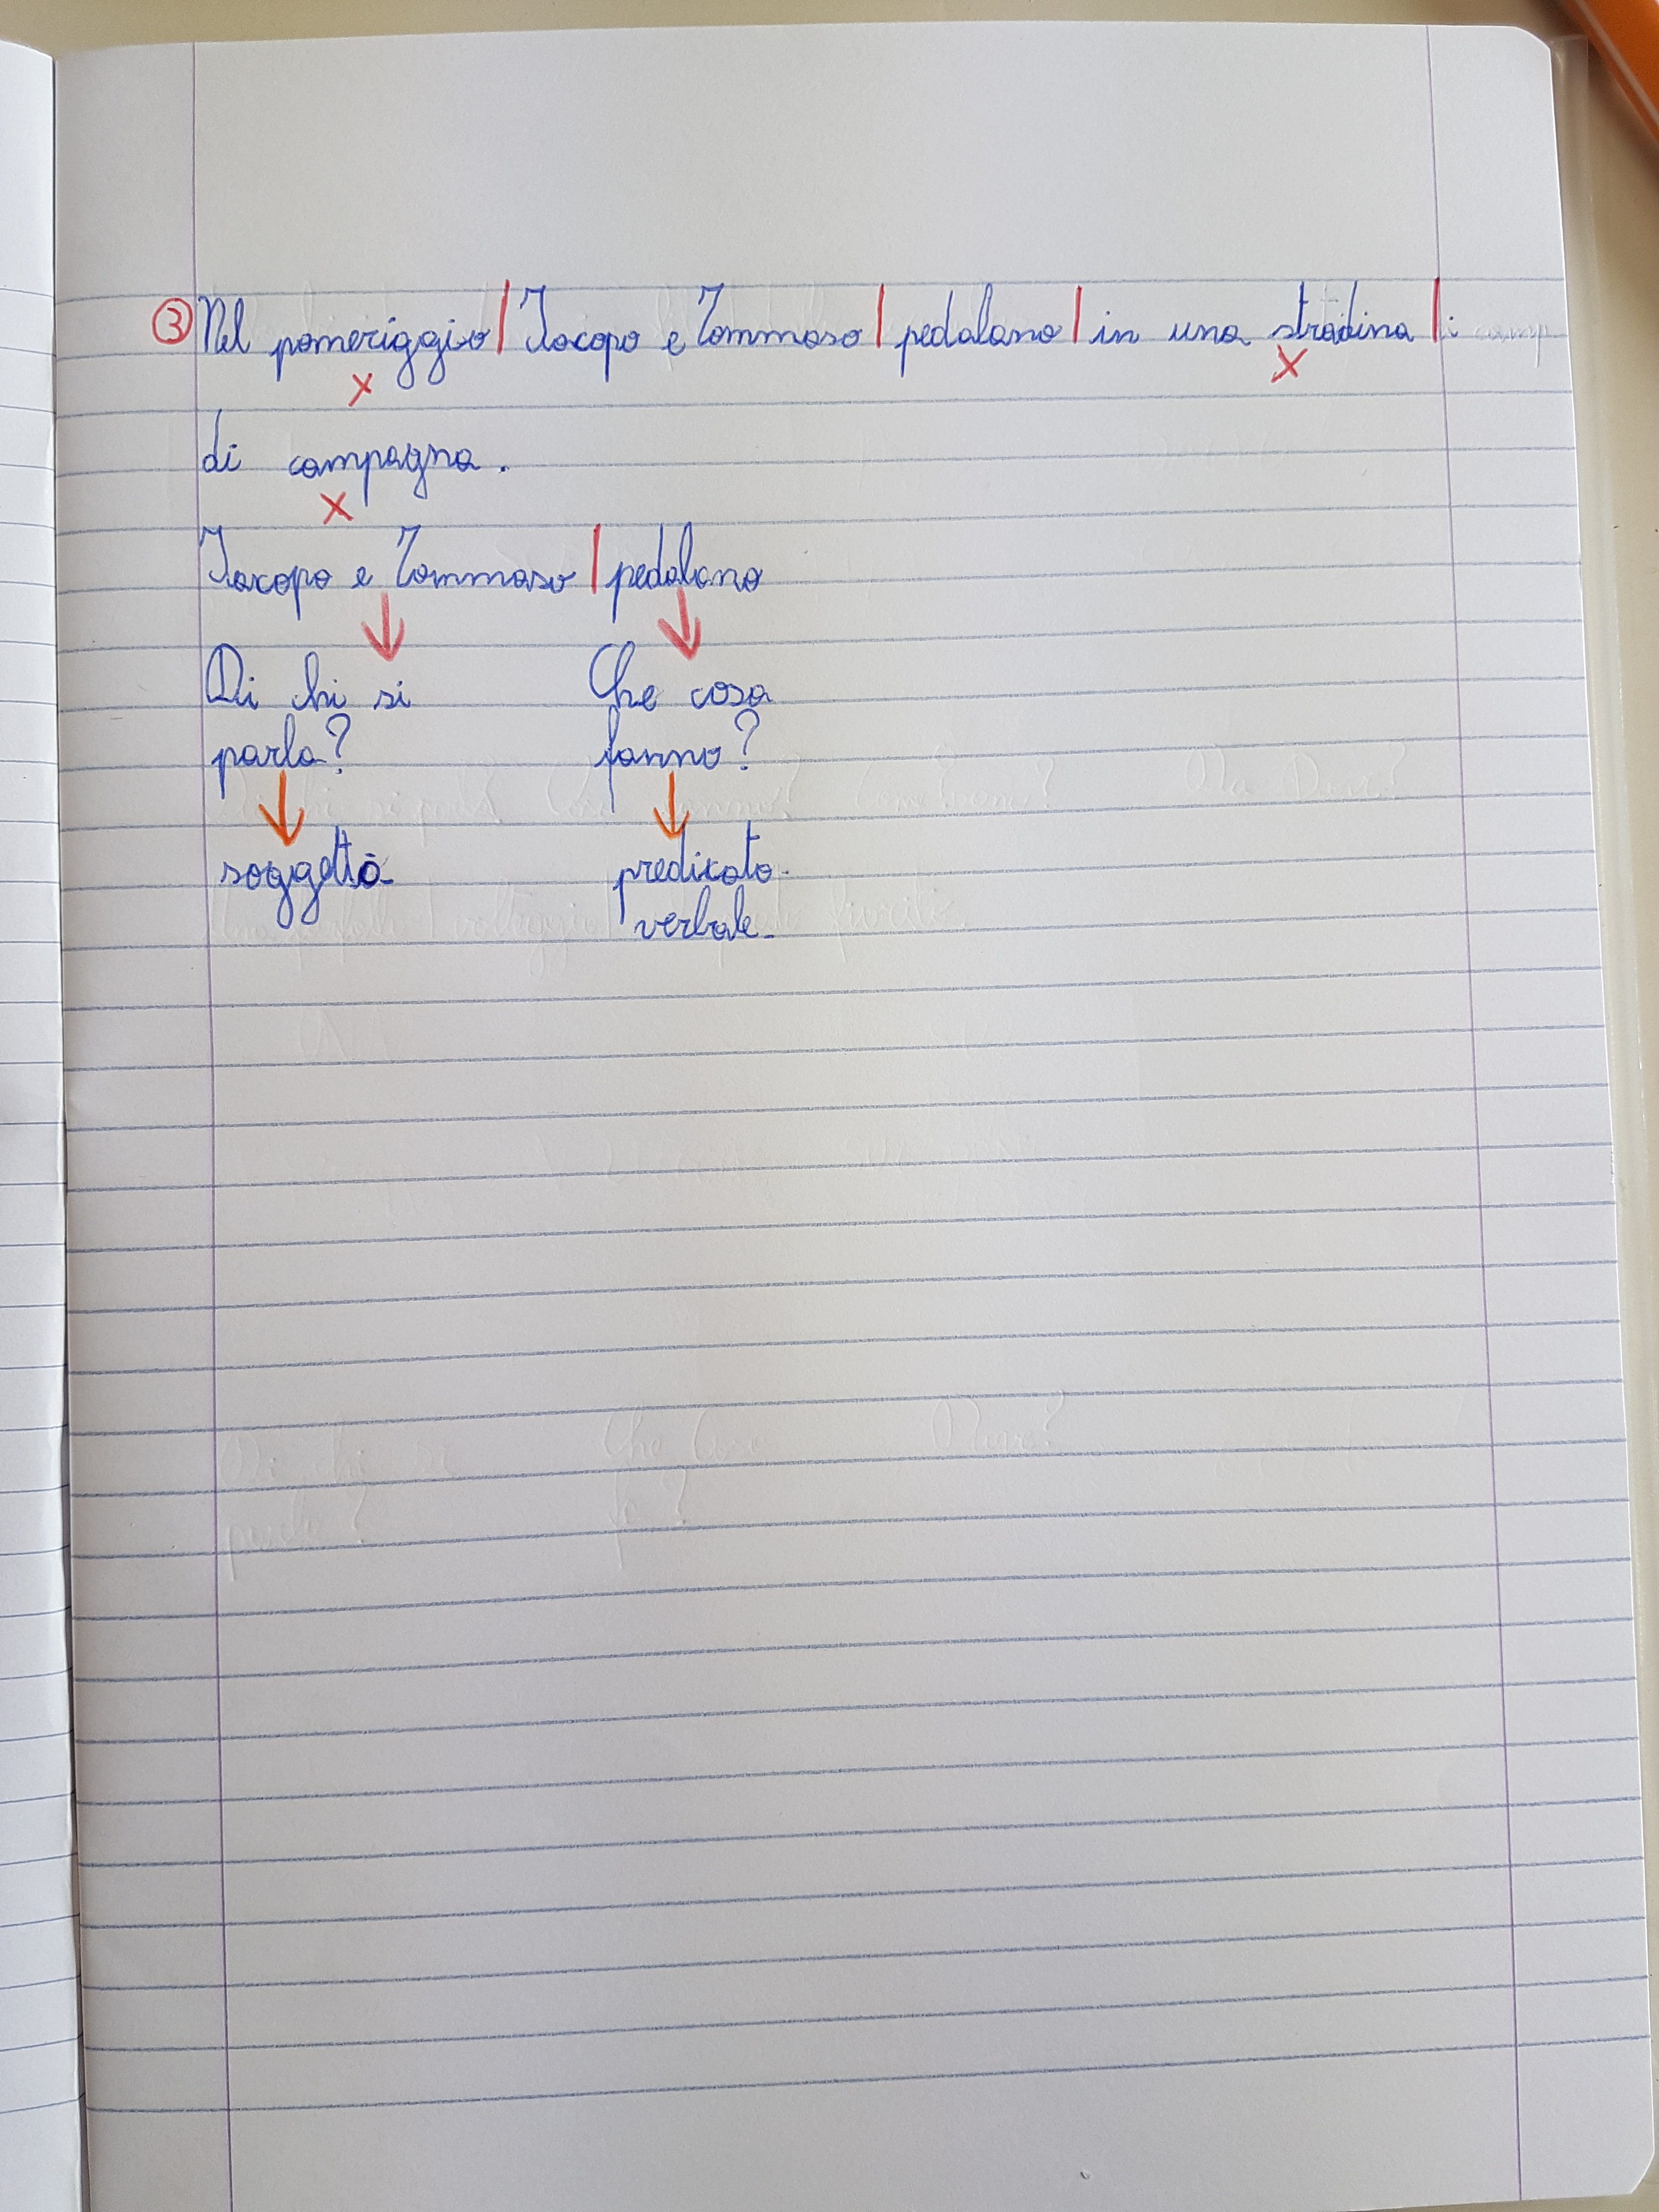 ③ Nel pomeriggio | Jacopo e Tommaso | pedalano | in una stradina |
x x
di campagna.
x
Jacopo e Tommaso | pedalano
Di chi si Che cosa
parla? fanno?
soggetto predicato
verbale